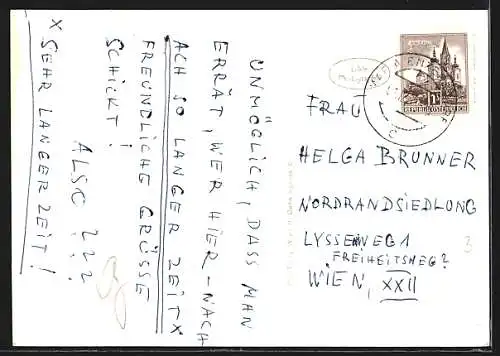 UNMÖGLICH, DASS MAN
ERRÄT, WER HIER - NACH
ACH SO LANGER ZEIT X
FREUNDLICHE GRÜSSE
SCHICKT!
ALSO ? ? ?
X SEHR LANGER ZEIT!
FRAU
HELGA BRUNNER
NORDRANDSIEDLUNG
LYSSENWEG 1
FREIHEITSWEG?
WIEN, XXII
REPUBLIK ÖSTERREICH
3